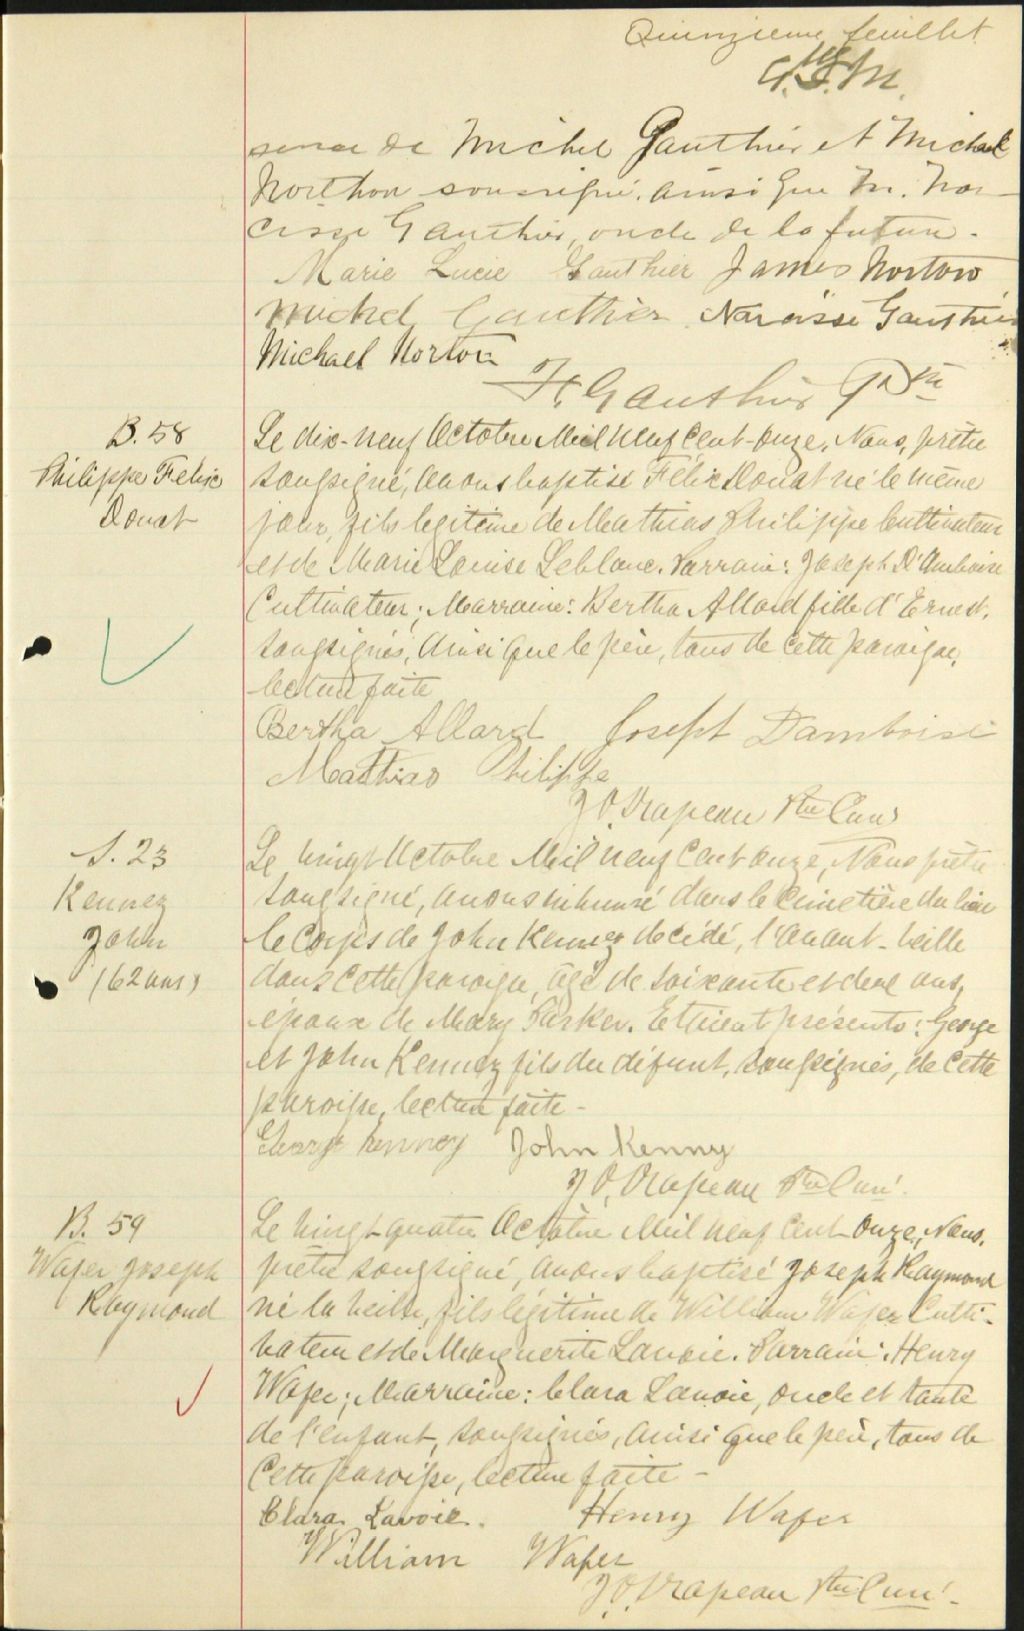 Quinzieme feuillet
sence de Michel Gauthier et Michael
Northon soussigné. ainsi que M. Nar-
cisse Gauthier, oncle de la future.
Marie Lucie Gauthier James Norton
Michel Gauthier Narcisse Gauthier
Michael Norton
Gauthier Ptre
B. 58
Philippe Felix
Donat
Le dix-neuf Octobre Mil neuf cent-onze, Nous, prêtre
soussigné, avons baptisé Félix Donat né le même
jour, fils legitime de Mathias Philippe Cultivateur
et de Marie Louise Leblanc. Parrain: Joseph D'Amboise
Cultivateur; Marraine: Bertha Allard fille d'Ernest,
soussignés, ainsi que le père, tous de cette paroisse,
lecture faite
Bertha Allard Joseph Damboise
Mathias Philippe
J O. Drapeau Ptre Curé
S. 23
Kenney
John
(62 ans)
Le vingt Octobre Mil neuf cent onze, Nous prêtre
soussigné, avons inhumé dans le cimetière du lieu
le corps de John Kenney décédé, l'avant-veille
dans cette paroisse, âgé de soixante et deux ans,
époux de Mary Parker. Etaient présents: George
et John Kenney fils du défunt, soussignés, de cette
paroisse, lecture faite -
George Kenney John Kenny
J O. Drapeau Ptre Curé.
B. 59
Wafer Joseph
Raymond
Le vingt-quatre Octobre Mil neuf cent onze, Nous,
prêtre soussigné, avons baptisé Joseph Raymond
né la veille, fils légitime de William Wafer Culti-
vateur et de Marguerite Lavoie. Parrain: Henry
Wafer; Marraine: Clara Lavoie, oncle et tante
de l'enfant, soussignés, ainsi que le père, tous de
cette paroisse, lecture faite -
Clara Lavoie. Henry Wafer
William Wafer
J O. Drapeau Ptre Curé.